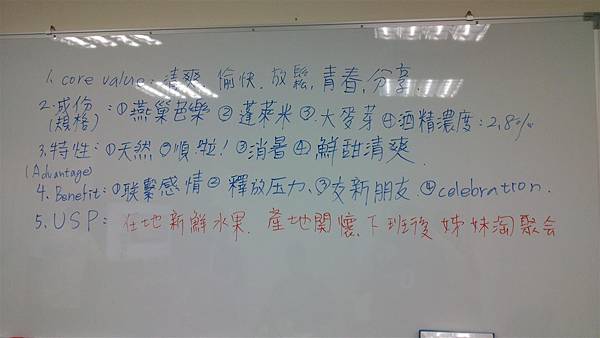 1. core value: 清爽, 愉快, 放鬆, 青春, 分享.
2. 成份 : ①燕巢芭樂 ②蓬萊米 ③大麥芽 ④酒精濃度: 2.8%
(規格)
3. 特性: ①天然 ②順啦! ③消暑 ④鮮甜清爽.
(Advantage)
4. Benefit: ①联繫感情 ② 釋放压力, ③交新朋友. ④celebration.
5. USP: 在地新鮮水果. 產地関懷. 下班後姊妹淘聚会